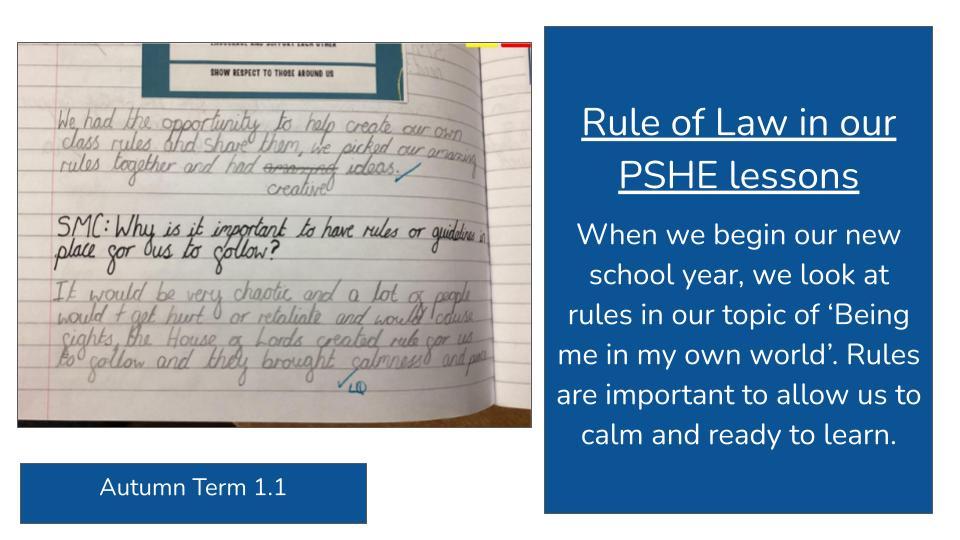 SHOW RESPECT TO THOSE AROUND US
We had the opportunity to help create our own
class rules and share them, we picked our amazing
rules together and had amazing ideas.
creative
SMC: Why is it important to have rules or guidelines in
place for us to follow?
It would be very chaotic and a lot of people
would get hurt or retaliate and would cause
fights, the House of Lords created rule for us
to follow and they brought calmness and
Autumn Term 1.1
Rule of Law in our
PSHE lessons
When we begin our new
school year, we look at
rules in our topic of ‘Being
me in my own world’. Rules
are important to allow us to
calm and ready to learn.